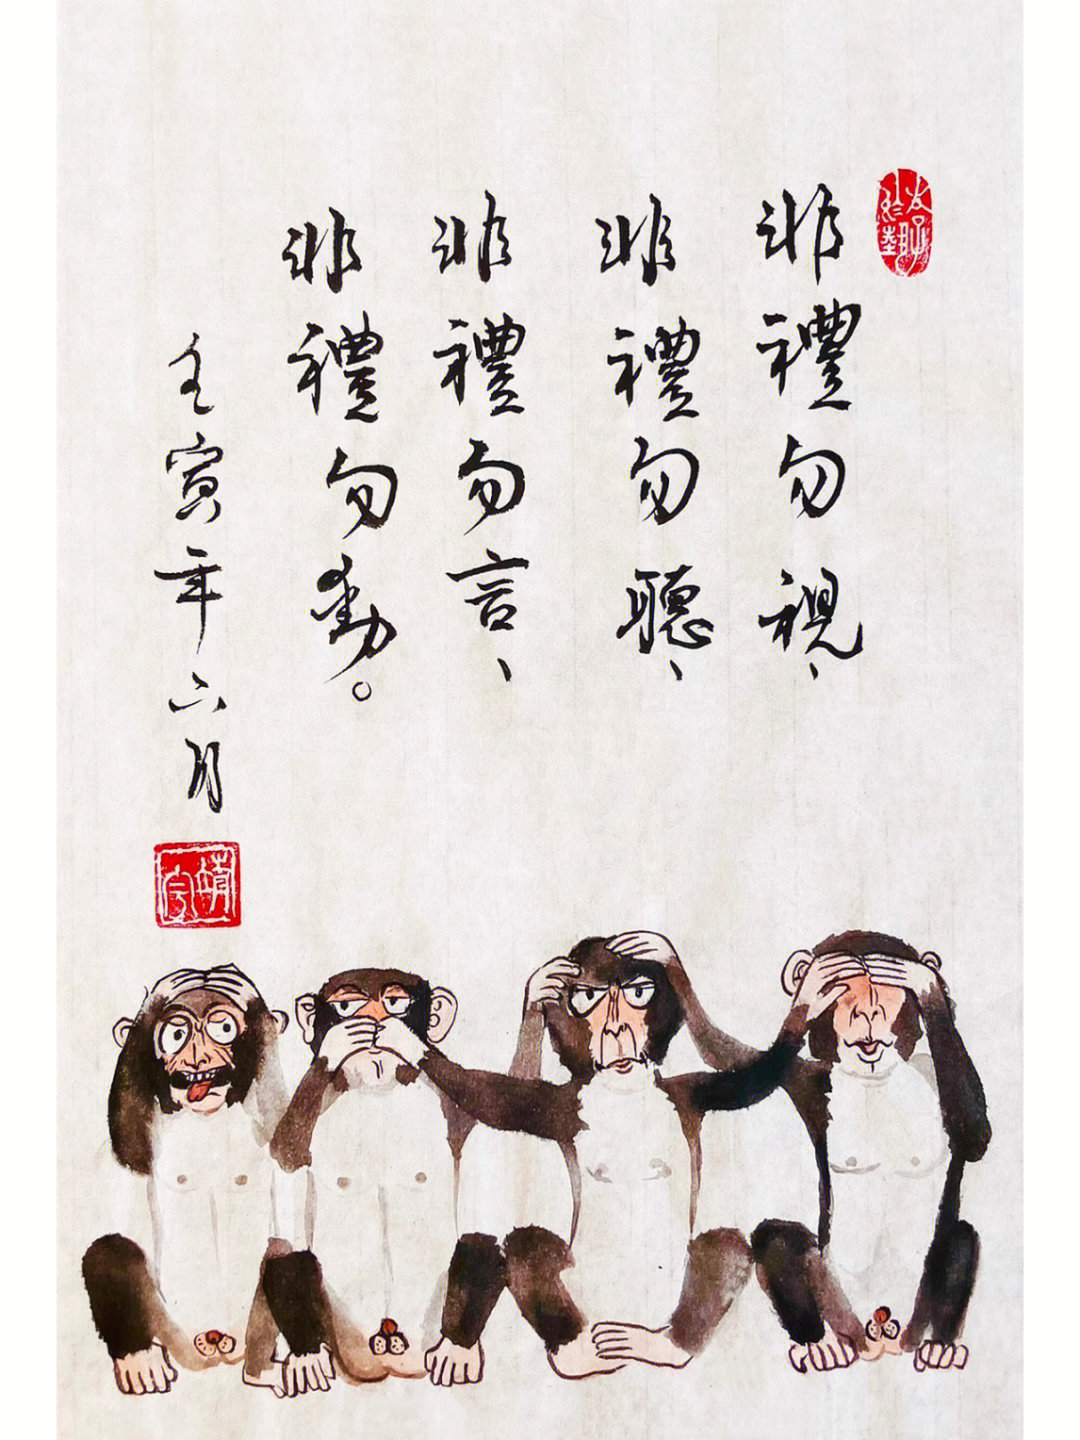 非禮勿視、
非禮勿聽、
非禮勿言、
非禮勿動。
壬寅年六月